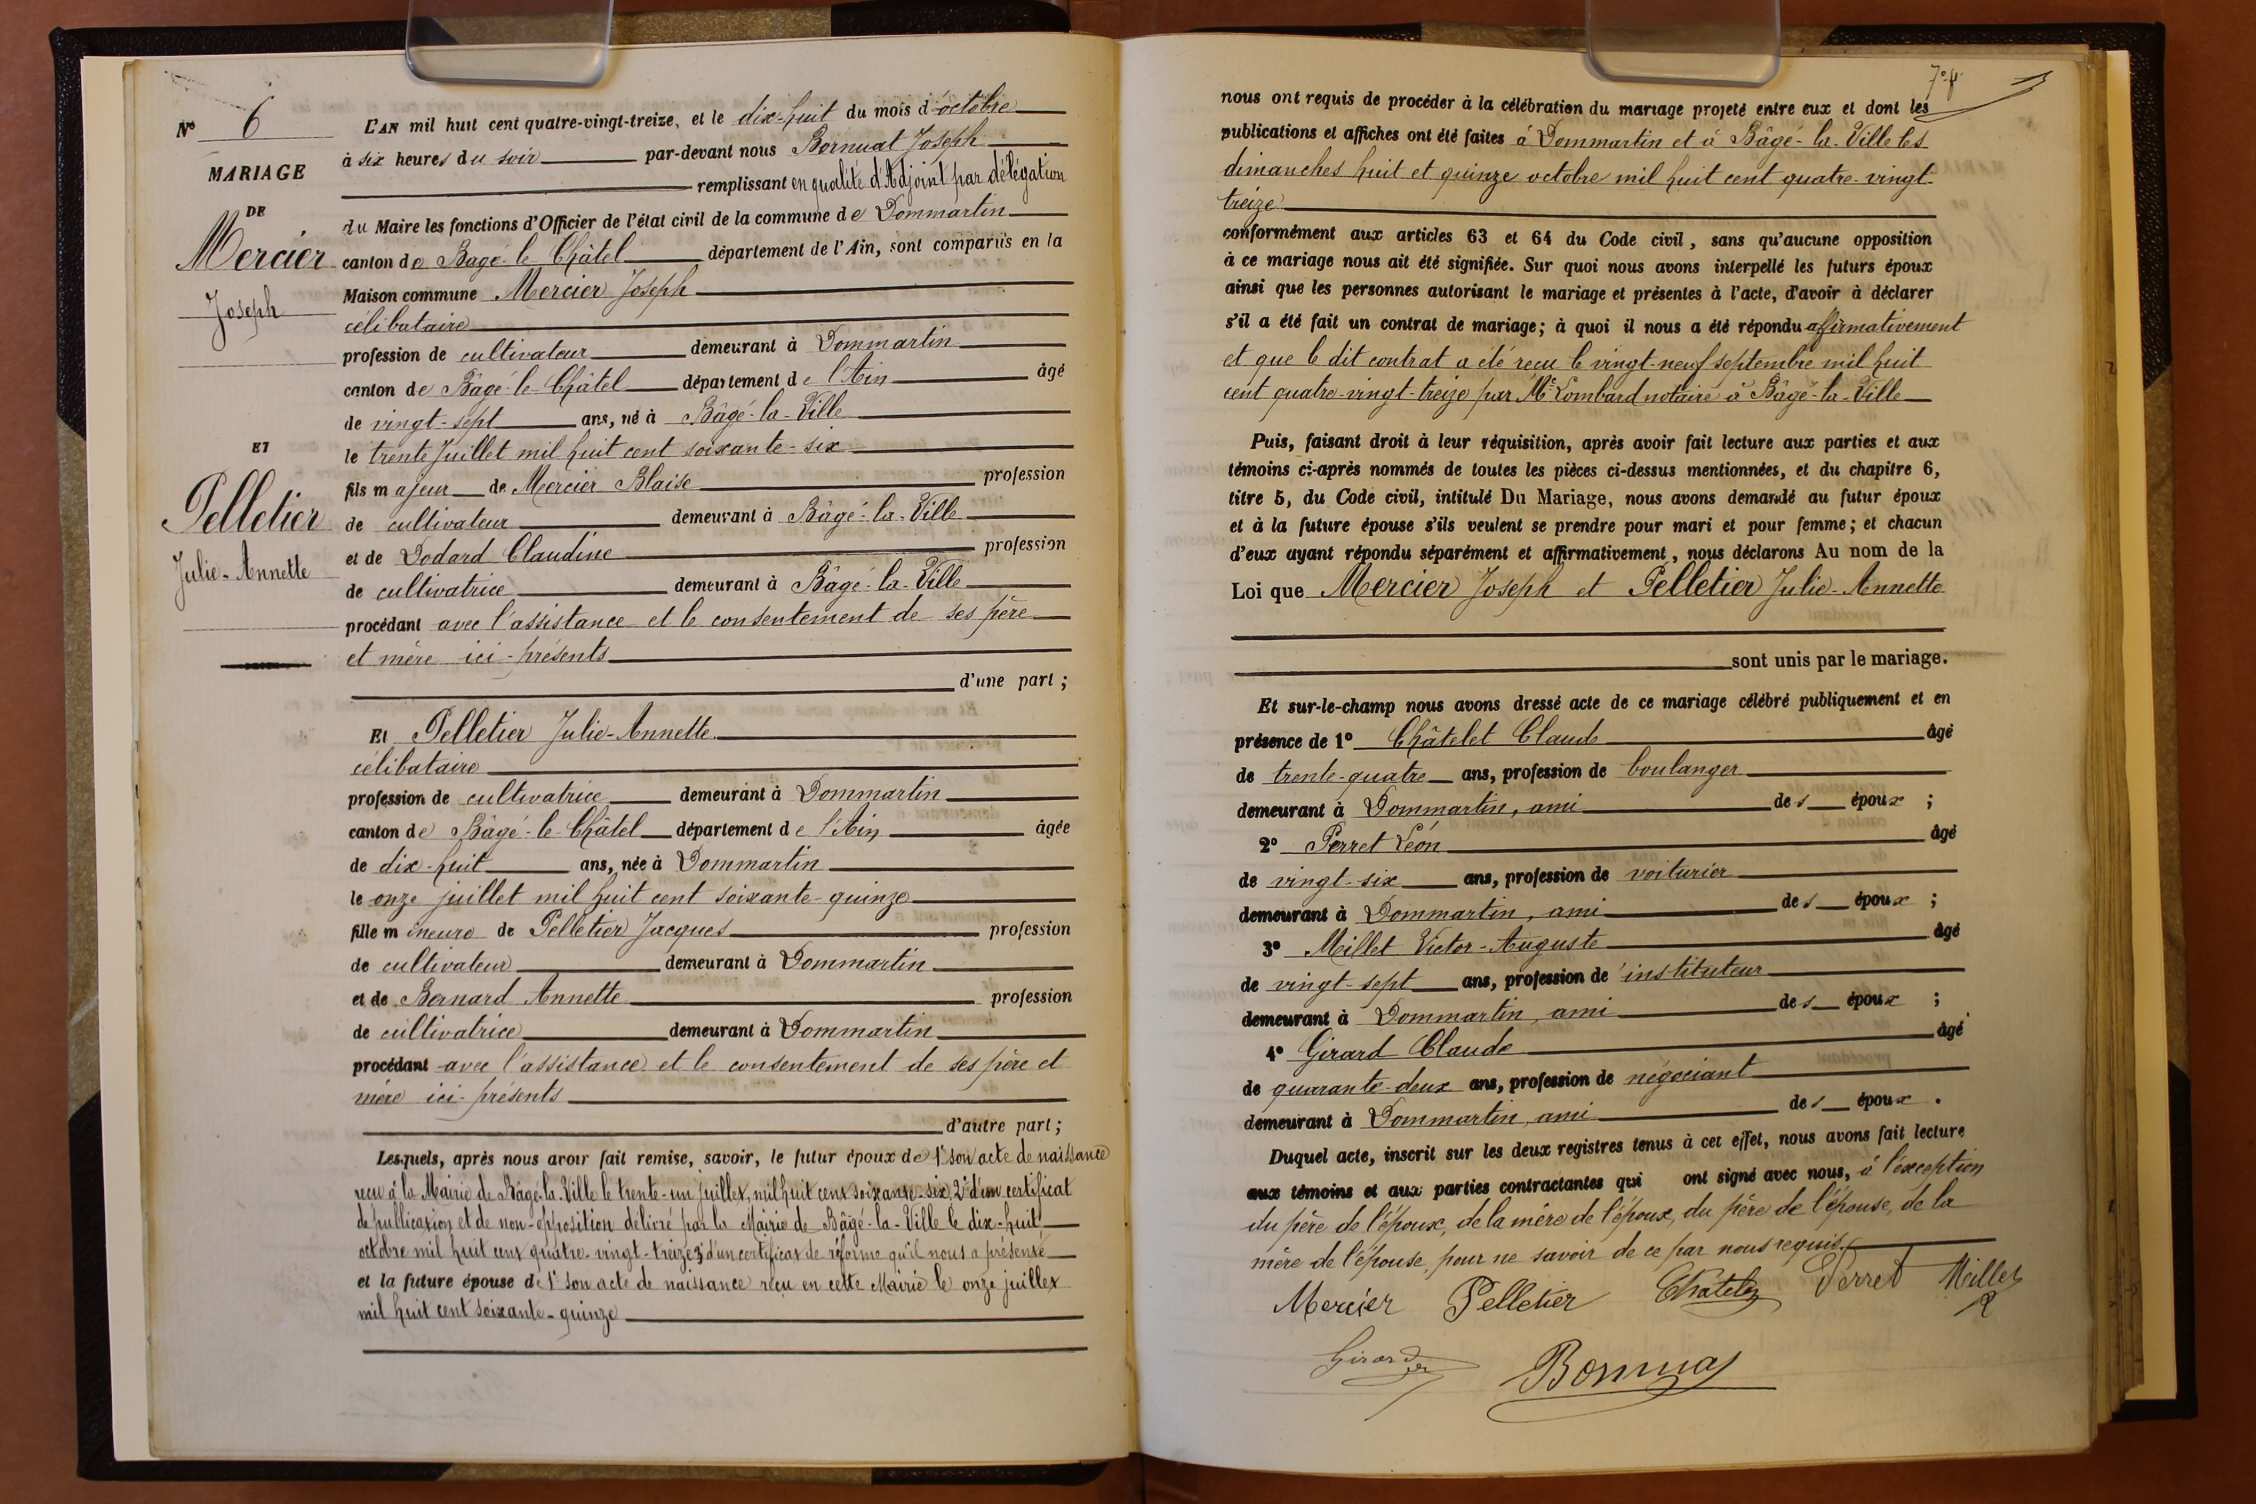 N° 6
MARIAGE
DE
Mercier
Joseph
ET
Pelletier
Julie-Annette
L'AN mil huit cent quatre-vingt-treize, et le dix-huit du mois d'octobre
à six heures du soir par-devant nous Bornuat Joseph
remplissant en qualité d'Adjoint par délégation
du Maire les fonctions d'Officier de l'état civil de la commune de Dommartin
canton de Bagé-le-Châtel département de l'Ain, sont comparus en la
Maison commune Mercier Joseph
célibataire
profession de cultivateur demeurant à Dommartin
canton de Bâgé-le-Châtel département de l'Ain âgé
de vingt-sept ans, né à Bâgé-la-Ville
le trente Juillet mil huit cent soixante-six
fils majeur de Mercier Blaise profession
de cultivateur demeurant à Bâgé-la-Ville
et de Dodard Claudine profession
de cultivatrice demeurant à Bâgé-la-Ville
procédant avec l'assistance et le consentement de ses père
et mère ici-présents
d'une part ;
Et Pelletier Julie-Annette
célibataire
profession de cultivatrice demeurant à Dommartin
canton de Bâgé-le-Châtel département de l'Ain âgée
de dix-huit ans, née à Dommartin
le onze juillet mil huit cent soixante-quinze
fille mineure de Pelletier Jacques profession
de cultivateur demeurant à Dommartin
et de Bernard Annette profession
de cultivatrice demeurant à Dommartin
procédant avec l'assistance et le consentement de ses père et
mère ici-présents
d'autre part ;
Lesquels, après nous avoir fait remise, savoir, le futur époux de 1° son acte de naissance
reçu à la Mairie de Bâgé-la-Ville le trente-un juillet, mil huit cent soixante-six, 2° d'un certificat
de publication et de non-opposition délivré par la Mairie de Bâgé-la-Ville le dix-huit
octobre mil huit cent quatre-vingt-treize 3° d'un certificat de réforme qu'il nous a présenté
et la future épouse de 1° son acte de naissance reçu en cette Mairie le onze juillet
mil huit cent soixante-quinze
nous ont requis de procéder à la célébration du mariage projeté entre eux et dont les
publications et affiches ont été faites à Dommartin et à Bâgé-la-Ville les
dimanches huit et quinze octobre mil huit cent quatre-vingt-
treize
conformément aux articles 63 et 64 du Code civil, sans qu'aucune opposition
à ce mariage nous ait été signifiée. Sur quoi nous avons interpellé les futurs époux
ainsi que les personnes autorisant le mariage et présentes à l'acte, d'avoir à déclarer
s'il a été fait un contrat de mariage; à quoi il nous a été répondu affirmativement
et que le dit contrat a été reçu le vingt-neuf septembre mil huit
cent quatre-vingt-treize par Me Lombard notaire à Bâgé-la-Ville
Puis, faisant droit à leur réquisition, après avoir fait lecture aux parties et aux
témoins ci-après nommés de toutes les pièces ci-dessus mentionnées, et du chapitre 6,
titre 5, du Code civil, intitulé Du Mariage, nous avons demandé au futur époux
et à la future épouse s'ils veulent se prendre pour mari et pour femme; et chacun
d'eux ayant répondu séparément et affirmativement, nous déclarons Au nom de la
Loi que Mercier Joseph et Pelletier Julie-Annette
sont unis par le mariage.
Et sur-le-champ nous avons dressé acte de ce mariage célébré publiquement et en
présence de 1° Châtelet Claude âgé
de trente-quatre ans, profession de boulanger
demeurant à Dommartin, ami des époux ;
2° Perret Léon âgé
de vingt-six ans, profession de voiturier
demeurant à Dommartin, ami des époux ;
3° Millet Victor-Auguste âgé
de vingt-sept ans, profession de instituteur
demeurant à Dommartin, ami des époux ;
4° Girard Claude âgé
de quarante-deux ans, profession de négociant
demeurant à Dommartin, ami des époux.
Duquel acte, inscrit sur les deux registres tenus à cet effet, nous avons fait lecture
aux témoins et aux parties contractantes qui ont signé avec nous, à l'exception
du père de l'époux, de la mère de l'époux, du père de l'épouse, de la
mère de l'épouse, pour ne savoir de ce par nous requis.
Mercier Pelletier Châtelet Perret Millet
Girard Bornuat